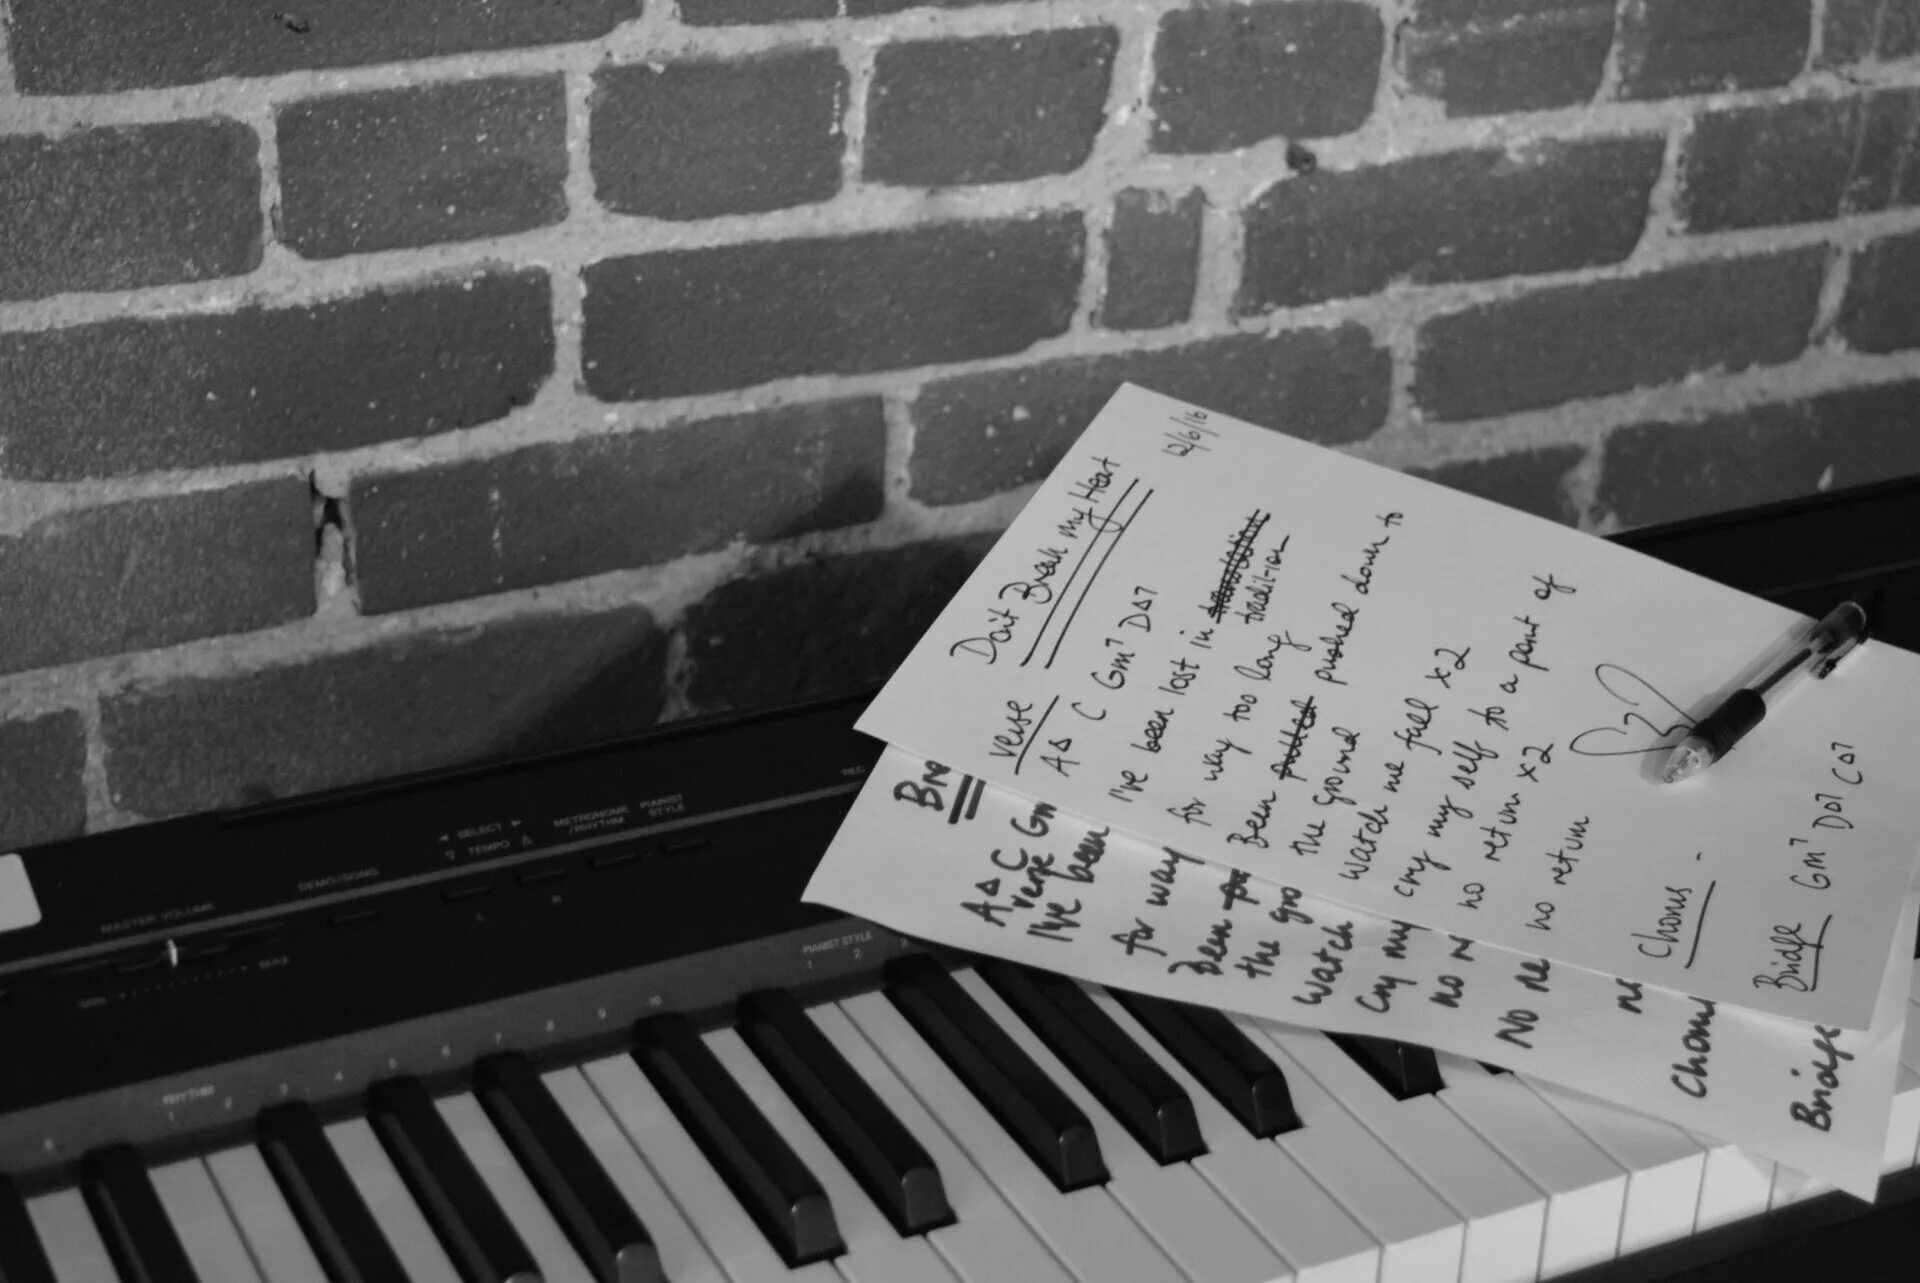 Don't Break my Heart
12/6/16
Verse
A△ C Gm7 D△7
I've been lost in
tradition
for way too long
Been pulled pushed down to
the ground
Watch me fall x2
cry my self to a point of
no return x2
no return
Chorus -
Bridge Gm7 D△7 C△7
Bre
A△ C Gm
verse
I've been
for way
Been
the gro
Watch
cry my
no
No re
re
Choru
Bridge
REC
◄ SELECT ►
▽ TEMPO △
METRONOME
/RHYTHM
PIANIST
STYLE
DEMO/SONG
MASTER VOLUME
MIN MAX
PIANIST STYLE
1 2 3
RHYTHM
1 2 3 4 5 6 7 8 9 10